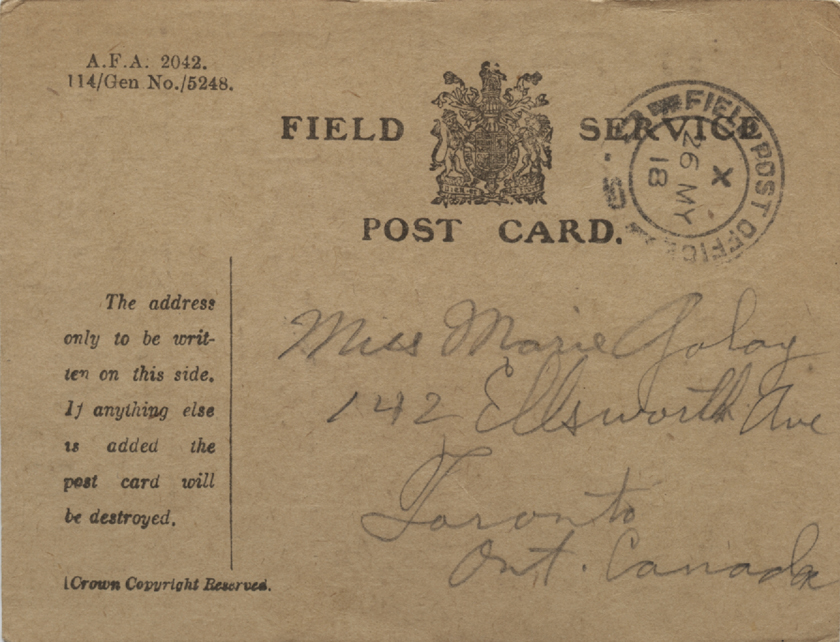 A.F.A. 2042.
114/Gen No./5248.
FIELD SERVICE
POST CARD.
FIELD POST OFFICE
X
26 MY
18
The address
only to be writ-
ten on this side.
If anything else
is added the
post card will
be destroyed.
[Crown Copyright Reserved.
Miss Marie Golay
142 Ellsworth Ave
Toronto
Ont. Canada